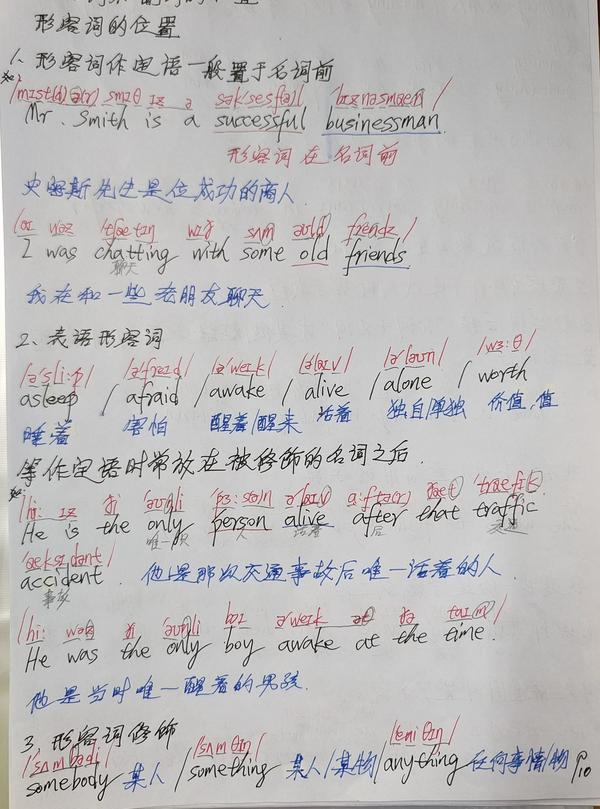 形容词的位置
1、形容词作定语一般置于名词前
如:
/mɪst(ə) ə(r) smɪθ ɪz ə səkˈsesf(ə)l bɪznəsmæn/
Mr. Smith is a successful businessman.
形容词在名词前
史密斯先生是位成功的商人.
/aɪ wəz ˈtʃætɪŋ wɪð sʌm əʊld frendz/
I was chatting with some old friends
聊天
我在和一些老朋友聊天.
2、表语形容词
/əˈsliːp/ /əˈfreɪd/ /əˈweɪk/ /əˈlaɪv/ /əˈləʊn/ /wɜːθ/
asleep / afraid / awake / alive / alone / worth
睡着 害怕 醒着/醒来 活着 独自/单独 价值、值
等作定语时常放在被修饰的名词之后.
如:
/hiː ɪz ði ˈəʊnli ˈpɜːs(ə)n əˈlaɪv ɑːftə(r) ðæt ˈtræfɪk
He is the only person alive after that traffic
唯一的 人 活着 后 交通
ˈæksɪdənt/
accident. 他是那次交通事故后唯一活着的人.
事故
/hiː wəz ði ˈəʊnli bɔɪ əˈweɪk ət ðə taɪm/
He was the only boy awake at the time.
他是当时唯一醒着的男孩.
3、形容词修饰
/sʌmbədi/ /sʌmθɪŋ/ /ˈeniθɪŋ/
somebody 某人 / something 某人/某物 / anything 任何事情/物
P10